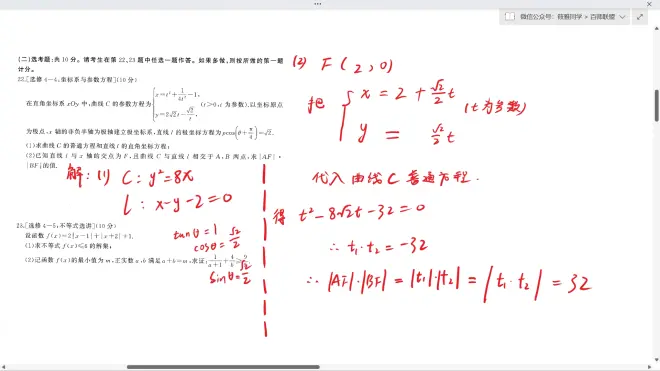 微信公众号：筱雅同学 × 百师联盟
(二)选考题:共 10 分。请考生在第 22、23 题中任选一题作答。如果多做,则按所做的第一题
计分。
22.[选修 4-4:坐标系与参数方程](10 分)
在直角坐标系 xOy 中,曲线 C 的参数方程为 { x=t²+1/(4t²)-1, y=2√2t-√2/t, (t>0,t 为参数),以坐标原点
为极点,x 轴的非负半轴为极轴建立极坐标系,直线 l 的极坐标方程为 ρcos(θ+π/4)=√2.
(1)求曲线 C 的普通方程和直线 l 的直角坐标方程;
(2)已知直线 l 与 x 轴的交点为 F,且曲线 C 与直线 l 相交于 A,B 两点,求|AF|·
|BF|的值.
解: (1) C: y²=8x
l: x-y-2=0
23.[选修 4-5:不等式选讲](10 分)
设函数 f(x)=2|x-1|+|x+2|+1.
(1)求不等式 f(x)≤8 的解集;
(2)记函数 f(x)的最小值为 m,正实数 a,b 满足 a+b=m,求证:1/(a+1)+4/b≥9/
tanθ=1
cosθ=√2/2
sinθ=√2/2
(2) F(2,0)
把 { x=2+√2/2 t
y= √2/2 t
(t为参数)
代入曲线C普通方程.
得 t²-8√2t-32=0
∴ t₁·t₂=-32
∴ |AF|·|BF|=|t₁|·|t₂|=|t₁·t₂|=32